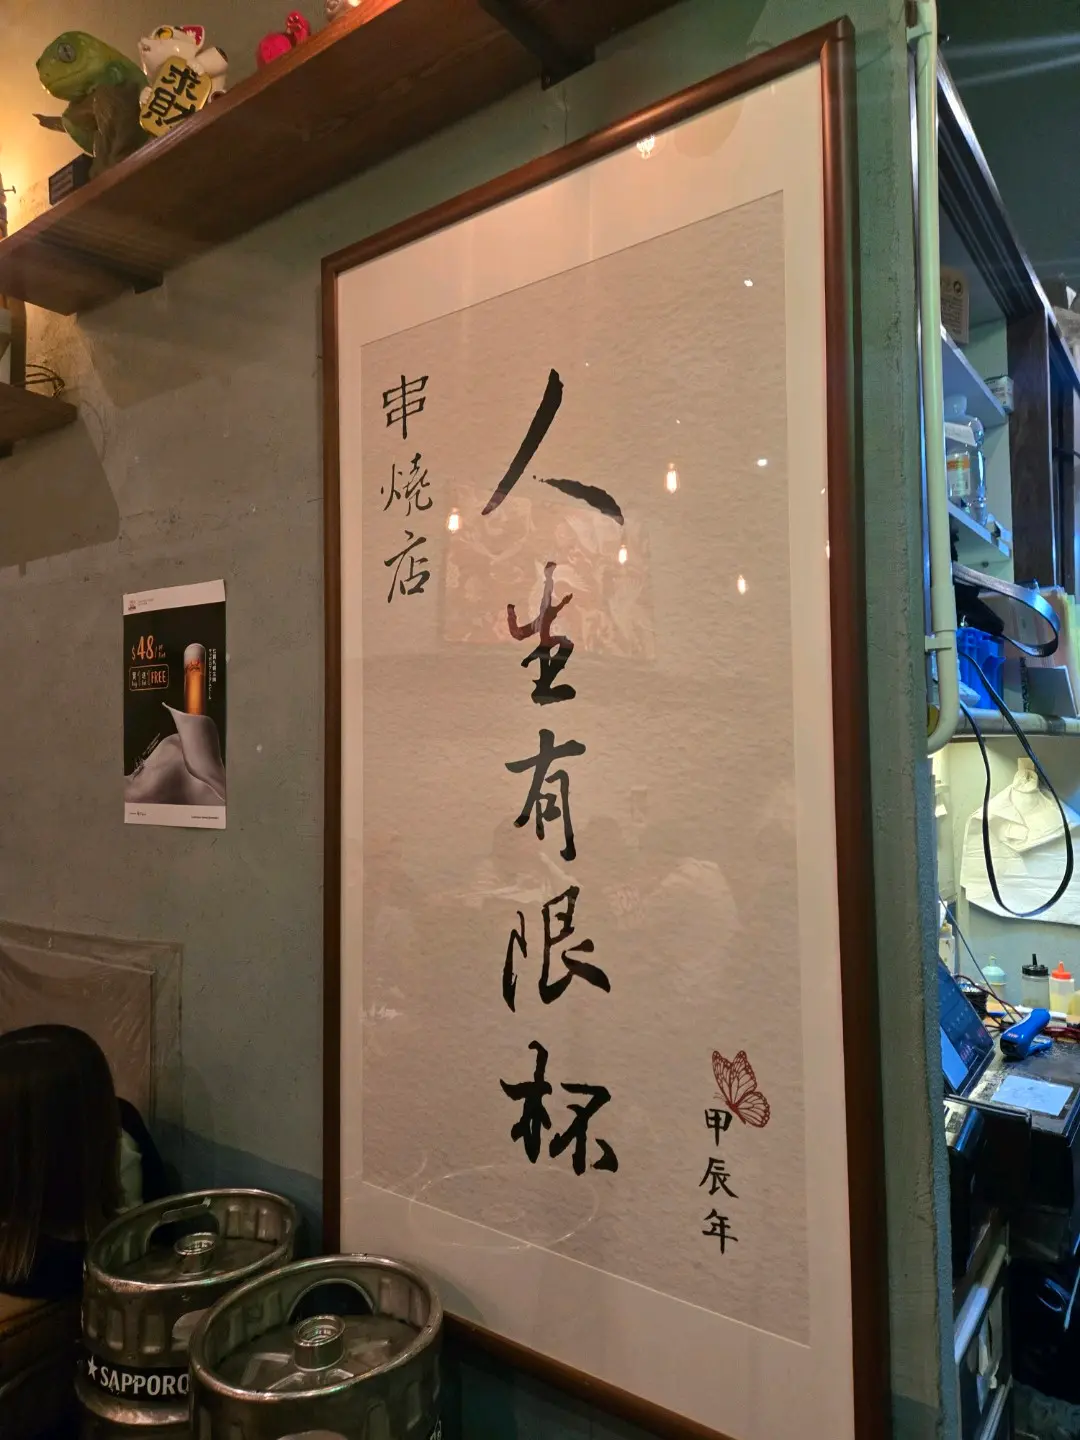 求財
串燒店
人生有限杯
甲辰年
$48
FREE
★SAPPORO